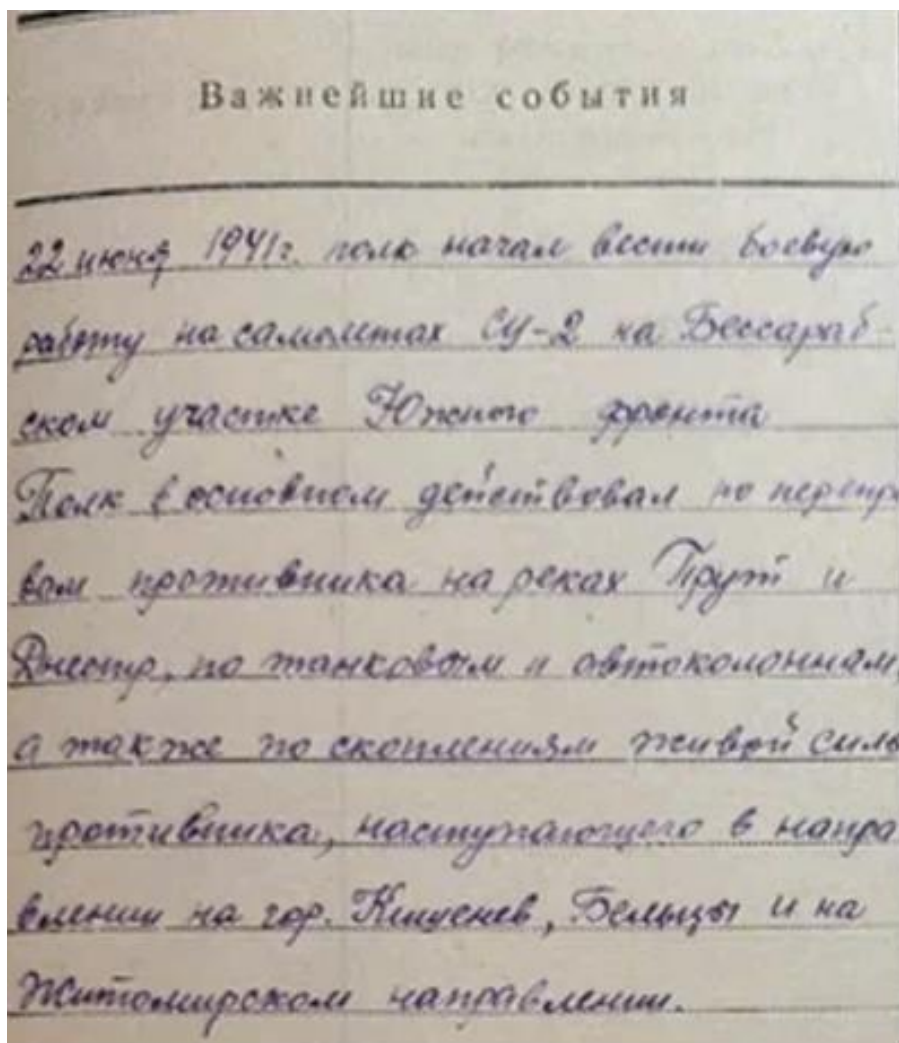 Важнейшие события
22 июня 1941г. полк начал вести боевую
работу на самолетах СУ-2 на Бессараб-
ском участке Южного фронта
Полк в основном действовал по перепра
вам противника на реках Прут и
Днестр, по танковым и автоколоннам,
а также по скоплениям живой силы
противника, наступающего в напра
влении на гор. Кишенев, Бельцы и на
Житомирском направлении.